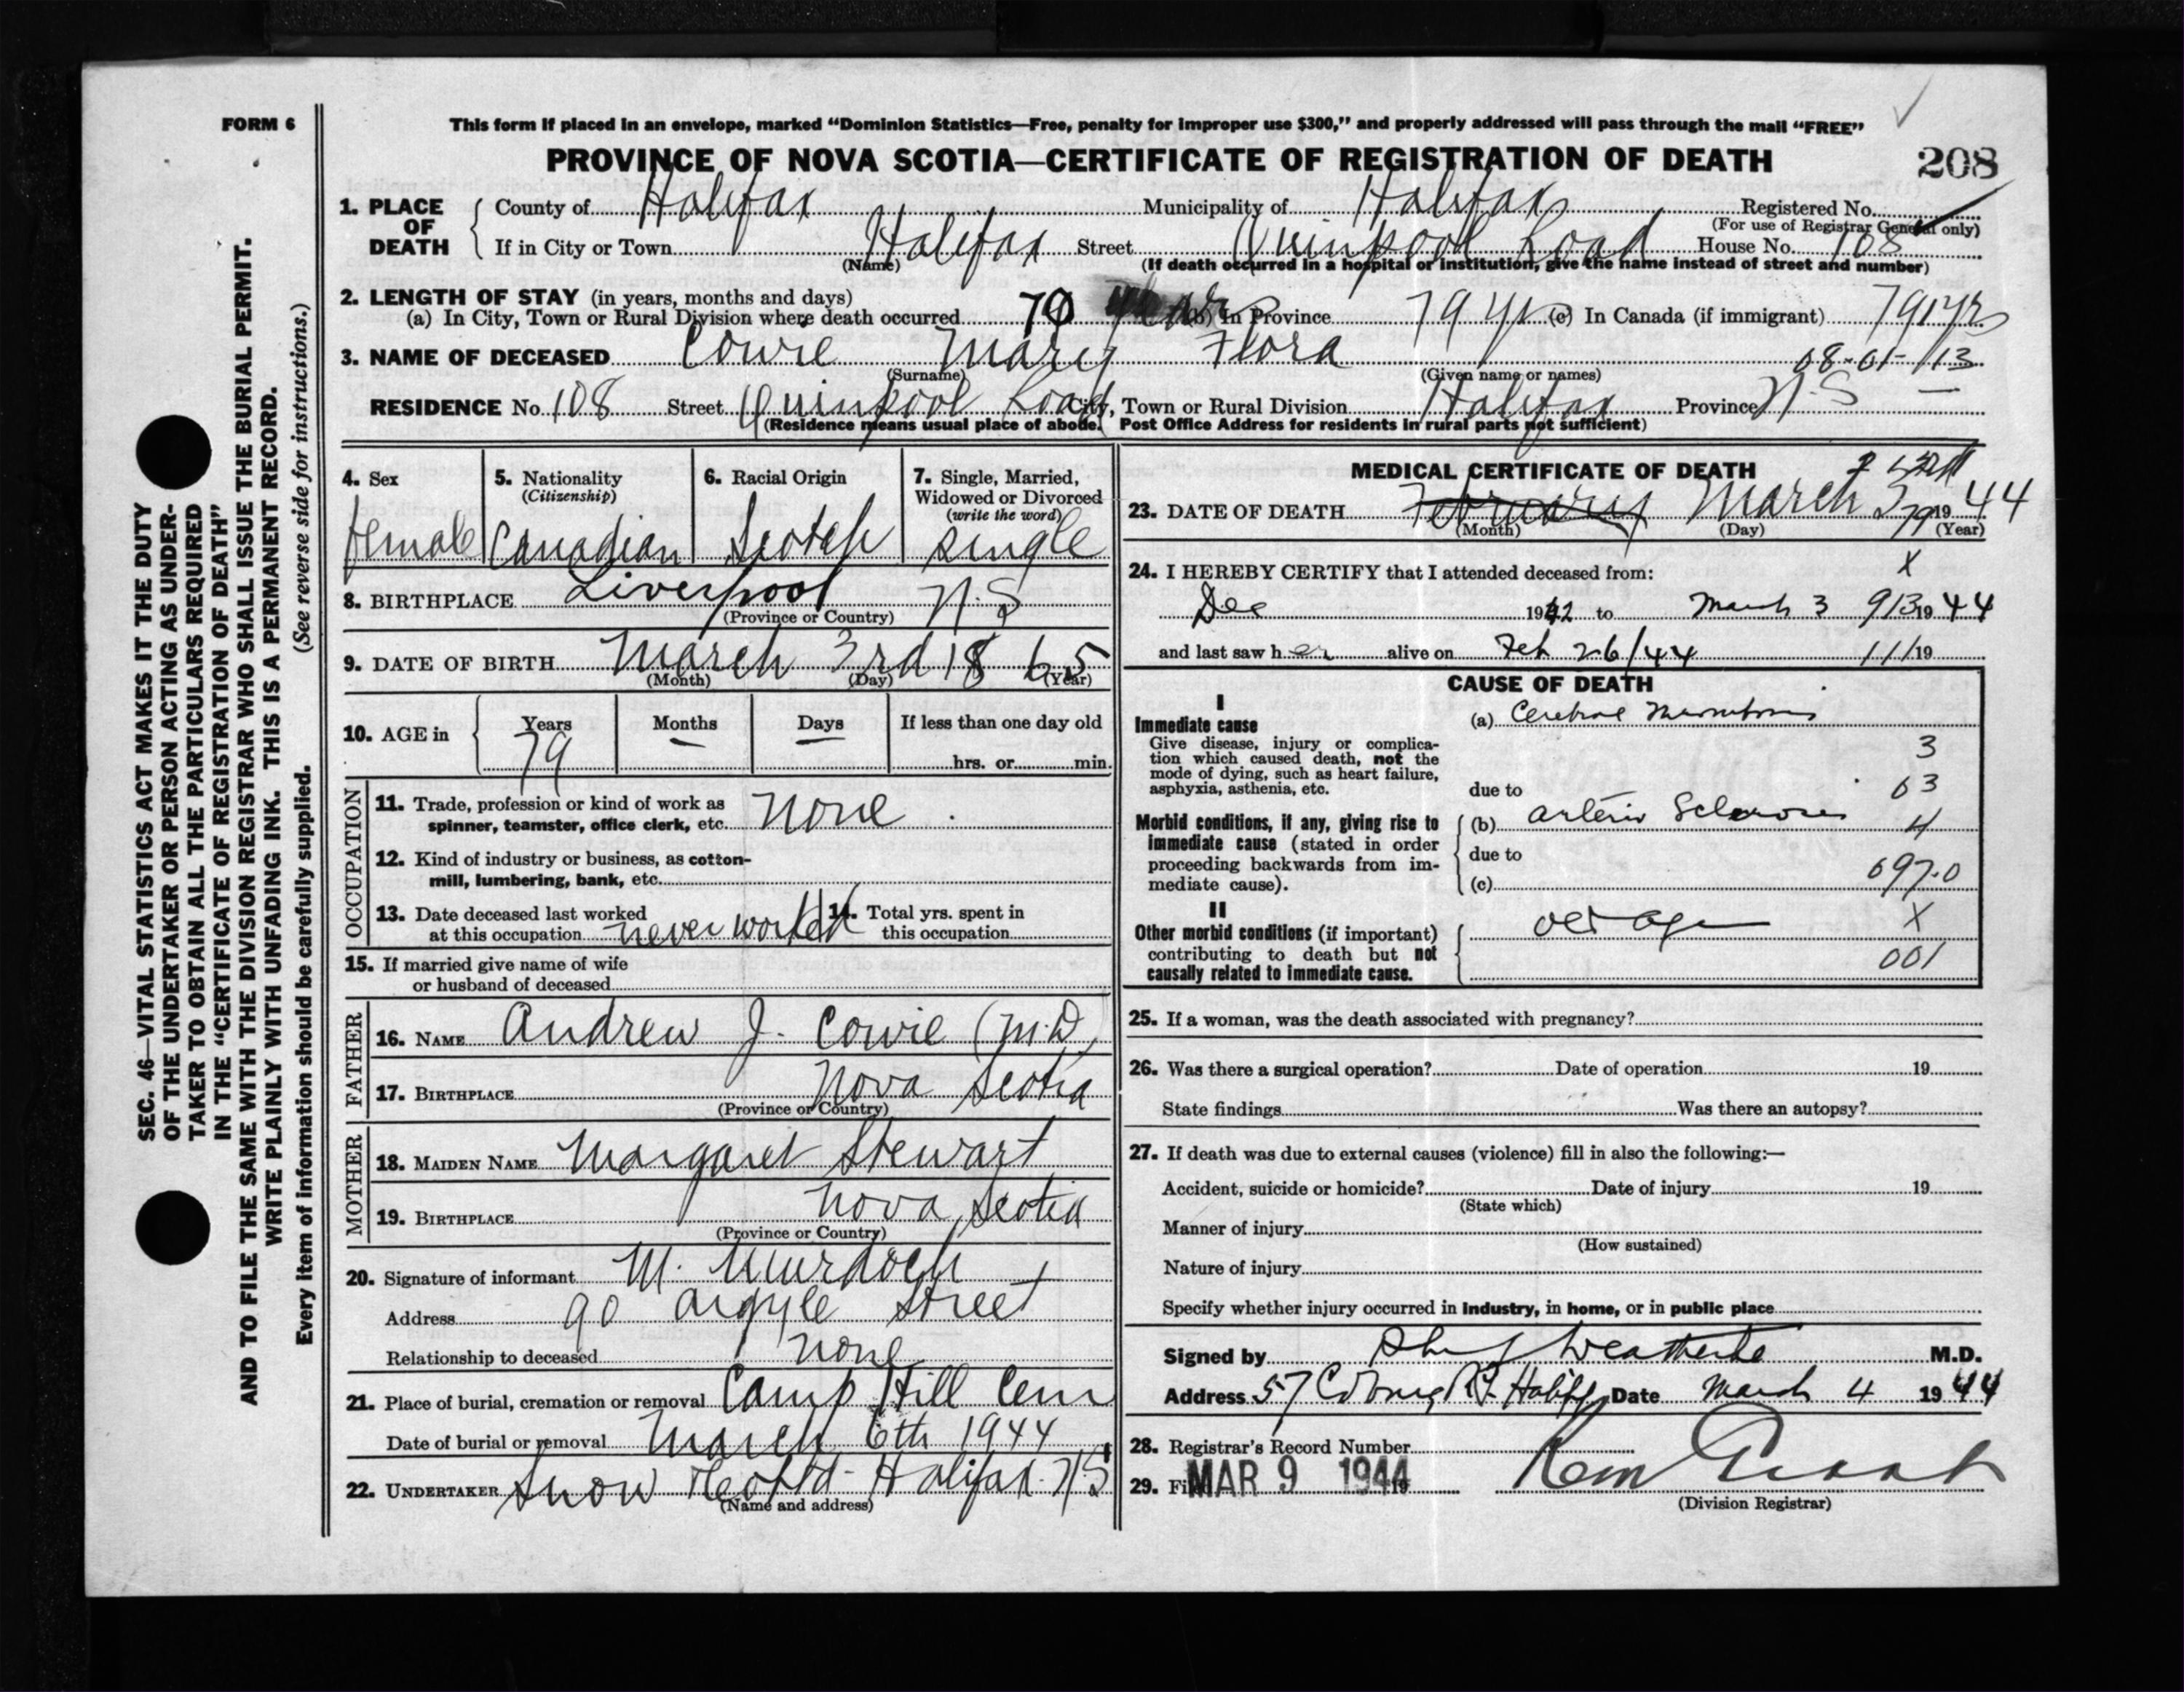 FORM 6
This form if placed in an envelope, marked “Dominion Statistics—Free, penalty for improper use $300,” and properly addressed will pass through the mail “FREE”
PROVINCE OF NOVA SCOTIA—CERTIFICATE OF REGISTRATION OF DEATH
208
1. PLACE OF DEATH County of Halifax Municipality of Halifax Registered No.
(For use of Registrar General only)
If in City or Town Halifax Street Quinpool Road House No. 108
(Name) (If death occurred in a hospital or institution, give the name instead of street and number)
2. LENGTH OF STAY (in years, months and days)
(a) In City, Town or Rural Division where death occurred 70 (b) In Province 79 yrs (c) In Canada (if immigrant) 79 yrs
3. NAME OF DECEASED Cowie Mary Flora 08-01-113
(Surname) (Given name or names)
RESIDENCE No. 108 Street Quinpool Road City, Town or Rural Division Halifax Province N.S —
(Residence means usual place of abode. Post Office Address for residents in rural parts not sufficient)
4. Sex
female
5. Nationality
(Citizenship)
Canadian
6. Racial Origin
Scotch
7. Single, Married,
Widowed or Divorced
(write the word)
single
8. BIRTHPLACE Liverpool N.S
(Province or Country)
9. DATE OF BIRTH March 3rd 1865
(Month) (Day) (Year)
10. AGE in Years Months Days If less than one day old
79 — — hrs. or min.
OCCUPATION
11. Trade, profession or kind of work as
spinner, teamster, office clerk, etc. None
12. Kind of industry or business, as cotton-
mill, lumbering, bank, etc.
13. Date deceased last worked 14. Total yrs. spent in
at this occupation never worked this occupation
15. If married give name of wife
or husband of deceased
FATHER
16. NAME Andrew J. Cowie (M.D)
17. BIRTHPLACE Nova Scotia
(Province or Country)
MOTHER
18. MAIDEN NAME Margaret Stewart
19. BIRTHPLACE Nova Scotia
(Province or Country)
20. Signature of informant M. Murdoch
Address 90 Argyle Street
Relationship to deceased none
21. Place of burial, cremation or removal Camp Hill Cem
Date of burial or removal March 6th 1944
22. UNDERTAKER Snow & Co Ltd - Halifax N S
(Name and address)
MEDICAL CERTIFICATE OF DEATH
23. DATE OF DEATH February March 3 79 1944
(Month) (Day) (Year)
24. I HEREBY CERTIFY that I attended deceased from: X
Dec 1942 to March 3 913 1944
and last saw her alive on Feb 26/44 11/19
CAUSE OF DEATH
I
Immediate cause
(a) Cerebral Thrombosis
Give disease, injury or complica-
tion which caused death, not the
mode of dying, such as heart failure,
asphyxia, asthenia, etc.
3
due to 63
Morbid conditions, if any, giving rise to
immediate cause (stated in order
proceeding backwards from im-
mediate cause).
(b) Arterio Sclerosis 4
due to
(c) 097.0
II
Other morbid conditions (if important)
contributing to death but not
causally related to immediate cause.
Old age X
001
25. If a woman, was the death associated with pregnancy?
26. Was there a surgical operation? Date of operation 19
State findings Was there an autopsy?
27. If death was due to external causes (violence) fill in also the following:—
Accident, suicide or homicide? Date of injury 19
(State which)
Manner of injury
(How sustained)
Nature of injury
Specify whether injury occurred in industry, in home, or in public place
Signed by Weatherbe M.D.
Address 57 Coburg Rd. Halifx Date March 4 1944
28. Registrar's Record Number
29. Fi MAR 9 1944 19
(Division Registrar)
SEC. 46—VITAL STATISTICS ACT MAKES IT THE DUTY
OF THE UNDERTAKER OR PERSON ACTING AS UNDER-
TAKER TO OBTAIN ALL THE PARTICULARS REQUIRED
IN THE “CERTIFICATE OF REGISTRATION OF DEATH”
AND TO FILE THE SAME WITH THE DIVISION REGISTRAR WHO SHALL ISSUE THE BURIAL PERMIT.
WRITE PLAINLY WITH UNFADING INK. THIS IS A PERMANENT RECORD.
Every item of information should be carefully supplied. (See reverse side for instructions.)